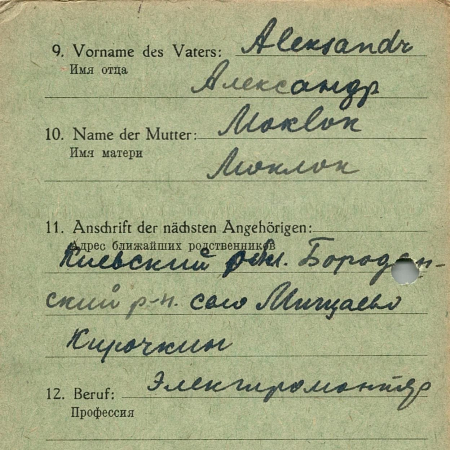 9. Vorname des Vaters: Aleksandr
Имя отца
Александр
10. Name der Mutter: Moklok
Имя матери
Моклок
11. Anschrift der nächsten Angehörigen:
Адрес ближайших родственников
Киевский обл. Бородян-
ский р-н. село Мигцаево
Кирочкин
12. Beruf: Электромонтер
Профессия